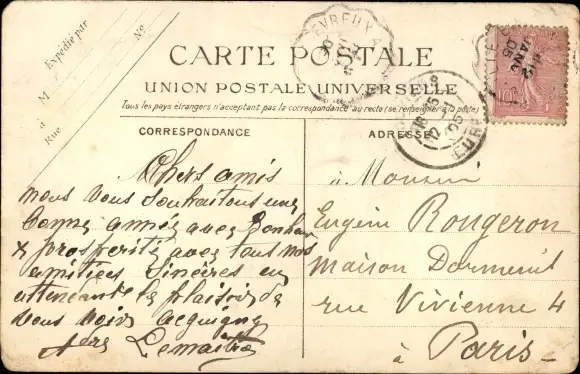 Expédié par
M
à
Rue
No
CARTE POSTALE
UNION POSTALE UNIVERSELLE
Tous les pays étrangers n'acceptent pas la correspondance au recto (se renseigner à la poste)
CORRESPONDANCE
ADRESSE
Chers amis
nous vous souhaitons une
bonne année avec bonheur
& prospérité avec tous nos
amitiées sincères en
attendant le plaisir de
vous voir acquigny
Lemaître
à Monsieur
Eugène Rougeron
maison Dormeuil
rue Vivienne 4
à Paris
EVREUX
EURE
10